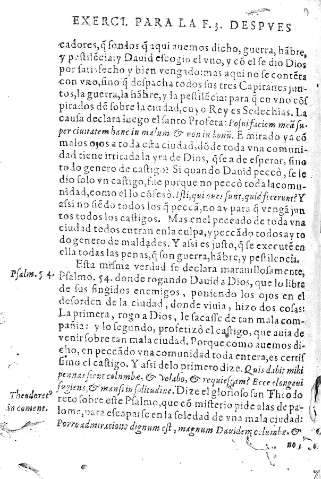 EXERCI. PARA LA F. 3. DESPVES
cadores, q̃ son dos q̃ aqui auemos dicho, guerra, hãbre,
y pestilẽcia: y Dauid escogio el vno, y cõ el se dio Dios
por satisfecho y bien vengado: mas aqui no se contẽta
con vno, sino q̃ despacha todos sus tres Capitanes jun-
tos, la guerra, la hãbre, y la pestilẽcia: para q̃ en vno cõs-
pirados dẽ sobre la ciudad, cuyo Rey es Sedechias. La
causa declara luego el santo Profeta: Posui faciem meã su-
per ciuitatem hanc in malum & non in bonũ. E mirado ya cõ
malos ojos a toda esta ciudad, dõ de toda vna comuni-
dad tiene irritada la yra de Dios, q̃ se a de esperar, sino
todo genero de castigo? Si quando Dauid peccó, se le
dio solo vn castigo, fue porque no peccò toda la comu-
nidad, como el lo cõfessò. Isti, qui oues sunt, quid fecerunt? Y
assi no siẽdo todos los q̃ peccã, no ay para q̃ vengã jun
tos todos los castigos. Mas en el peccado de toda vna
ciudad todos entran en la culpa, y peccãdo todos ay to
do genero de maldades. Y assi es justo, q̃ se executẽ en
ella todas las penas, q̃ son guerra, hãbre, y pestilencia.
Esta misma verdad se declara marauillosamente,
Psalm. 54.
Psalmo. 54. donde rogando Dauid a Dios, que lo libre
de sus fingidos enemigos, poniendo los ojos en el
desorden de la ciudad, donde viuia, hizo dos cosas:
La primera, rogo a Dios, le sacasse de tan mala com-
pañia: y lo segundo, profetizò el castigo, que auia de
venir sobre tan mala ciudad. Porque como auemos di-
cho, en peccãdo vna comunidad toda entera, es certis-
simo el castigo. Y assi delo primero dize. Quis dabit mihi
pennas sicut columbæ, & volabo, & requiescam? Ecce elongaui
fugiens, & mansi in solitudine. Dize el glorioso san Theodo
Theodoret.
in coment.
reto sobre este Psalmo, que cõ misterio pide alas de pa-
loma, para escaparse en la soledad de vna mala ciudad:
Porro admiratione dignum est, magnum Dauidem columbæ, &